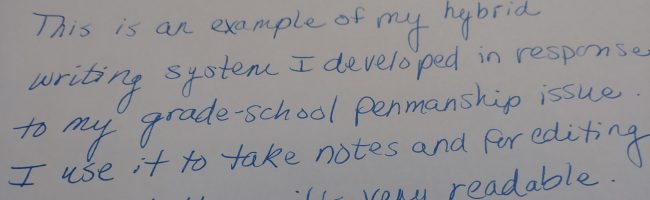 This is an example of my hybrid
writing system I developed in response
to my grade-school penmanship issue.
I use it to take notes and for editing
very readable.